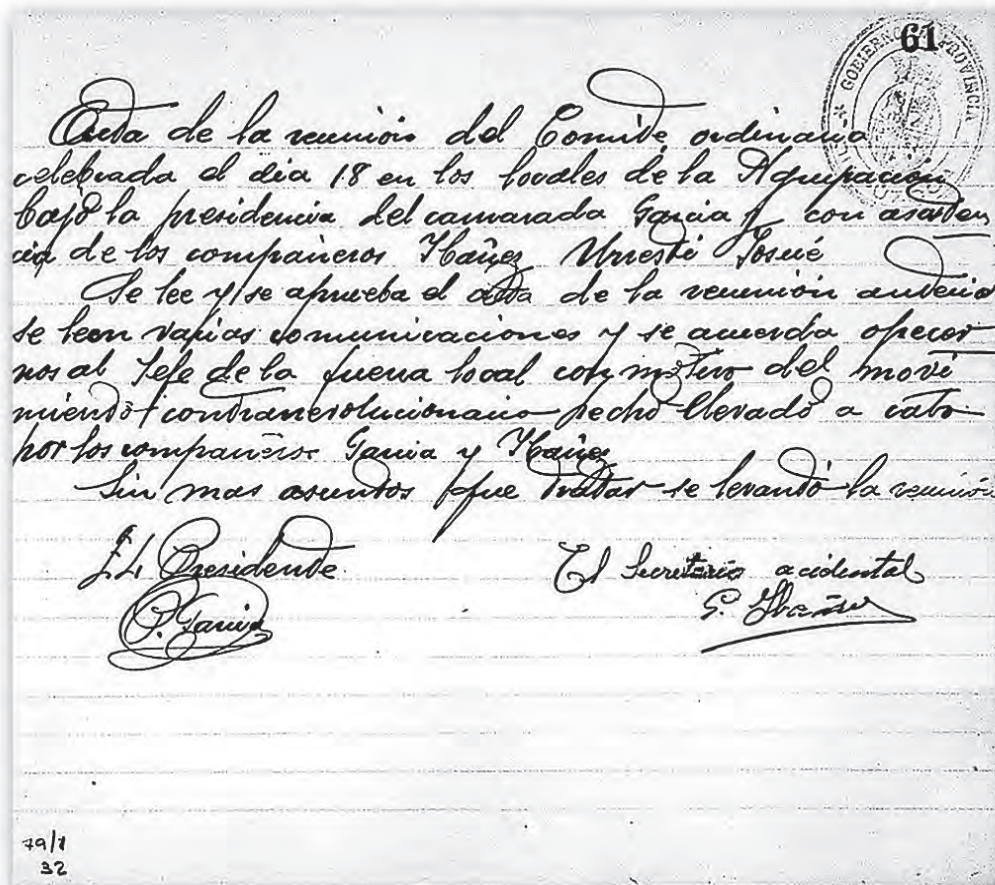 61
GOBIERNO PROVINCIA
Acta de la reunión del Comite ordinaria
celebrada el dia 18 en los locales de la Agrupación
bajo la presidencia del camarada Garcia y con asisten
cia de los compañeros Ibañez Urresti Josué
Se lee y se aprueba el acta de la reunión anterio
se leen varias comunicaciones y se acuerda ofrecer
nos al Jefe de la fuerza local con motivo del movi
miento contrarevolucionario hecho llevado a cabo
por los compañeros Garcia y Ibañez
Sin mas asuntos que tratar se levantó la reunión
El Presidente El Secretario accidental
P. Garcia G. Ibañez
79/1
32